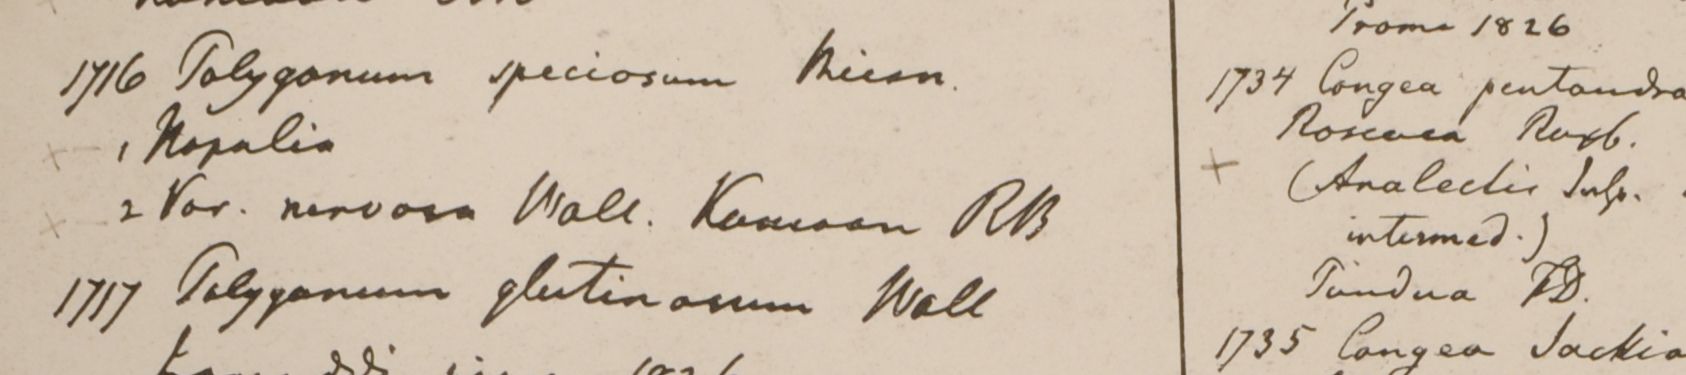 Kamaon RB
1716 Polygonum speciosum Miesn.
1 Napalia
2 Var. nervosa Wall. Kamaon RB
1717 Polygonum glutinosum Wall
1826
Prome 1826
1734 Congea pentandra
Roscoea Roxb.
(Analectis Insp.
intermed.)
Tundua FD.
1735 Congea Jackia